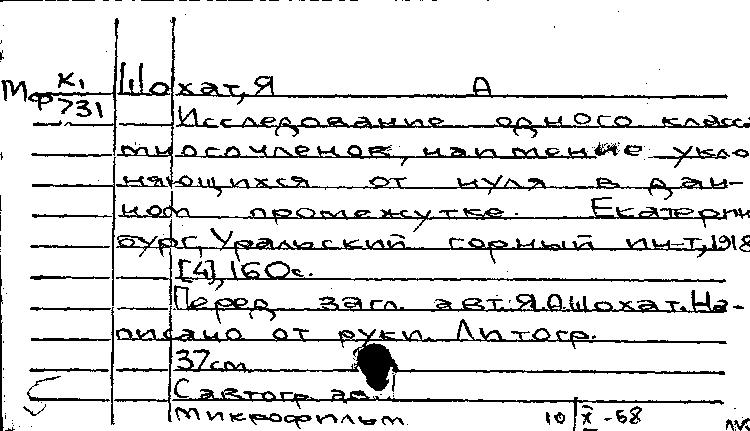 К1 Шохат, Я А
Мф 731
Исследование одного класса
многочленов, наименее укло
няющихся от нуля в дан-
ном промежутке. Екатерин
бург, Уральский горный ин-т, 1918
[4], 160с.
Перед загл. авт. Я.А.Шохат. На-
писано от руки. Литогр.
37см
С автогр. ав.
Микрофильм 10/X-68